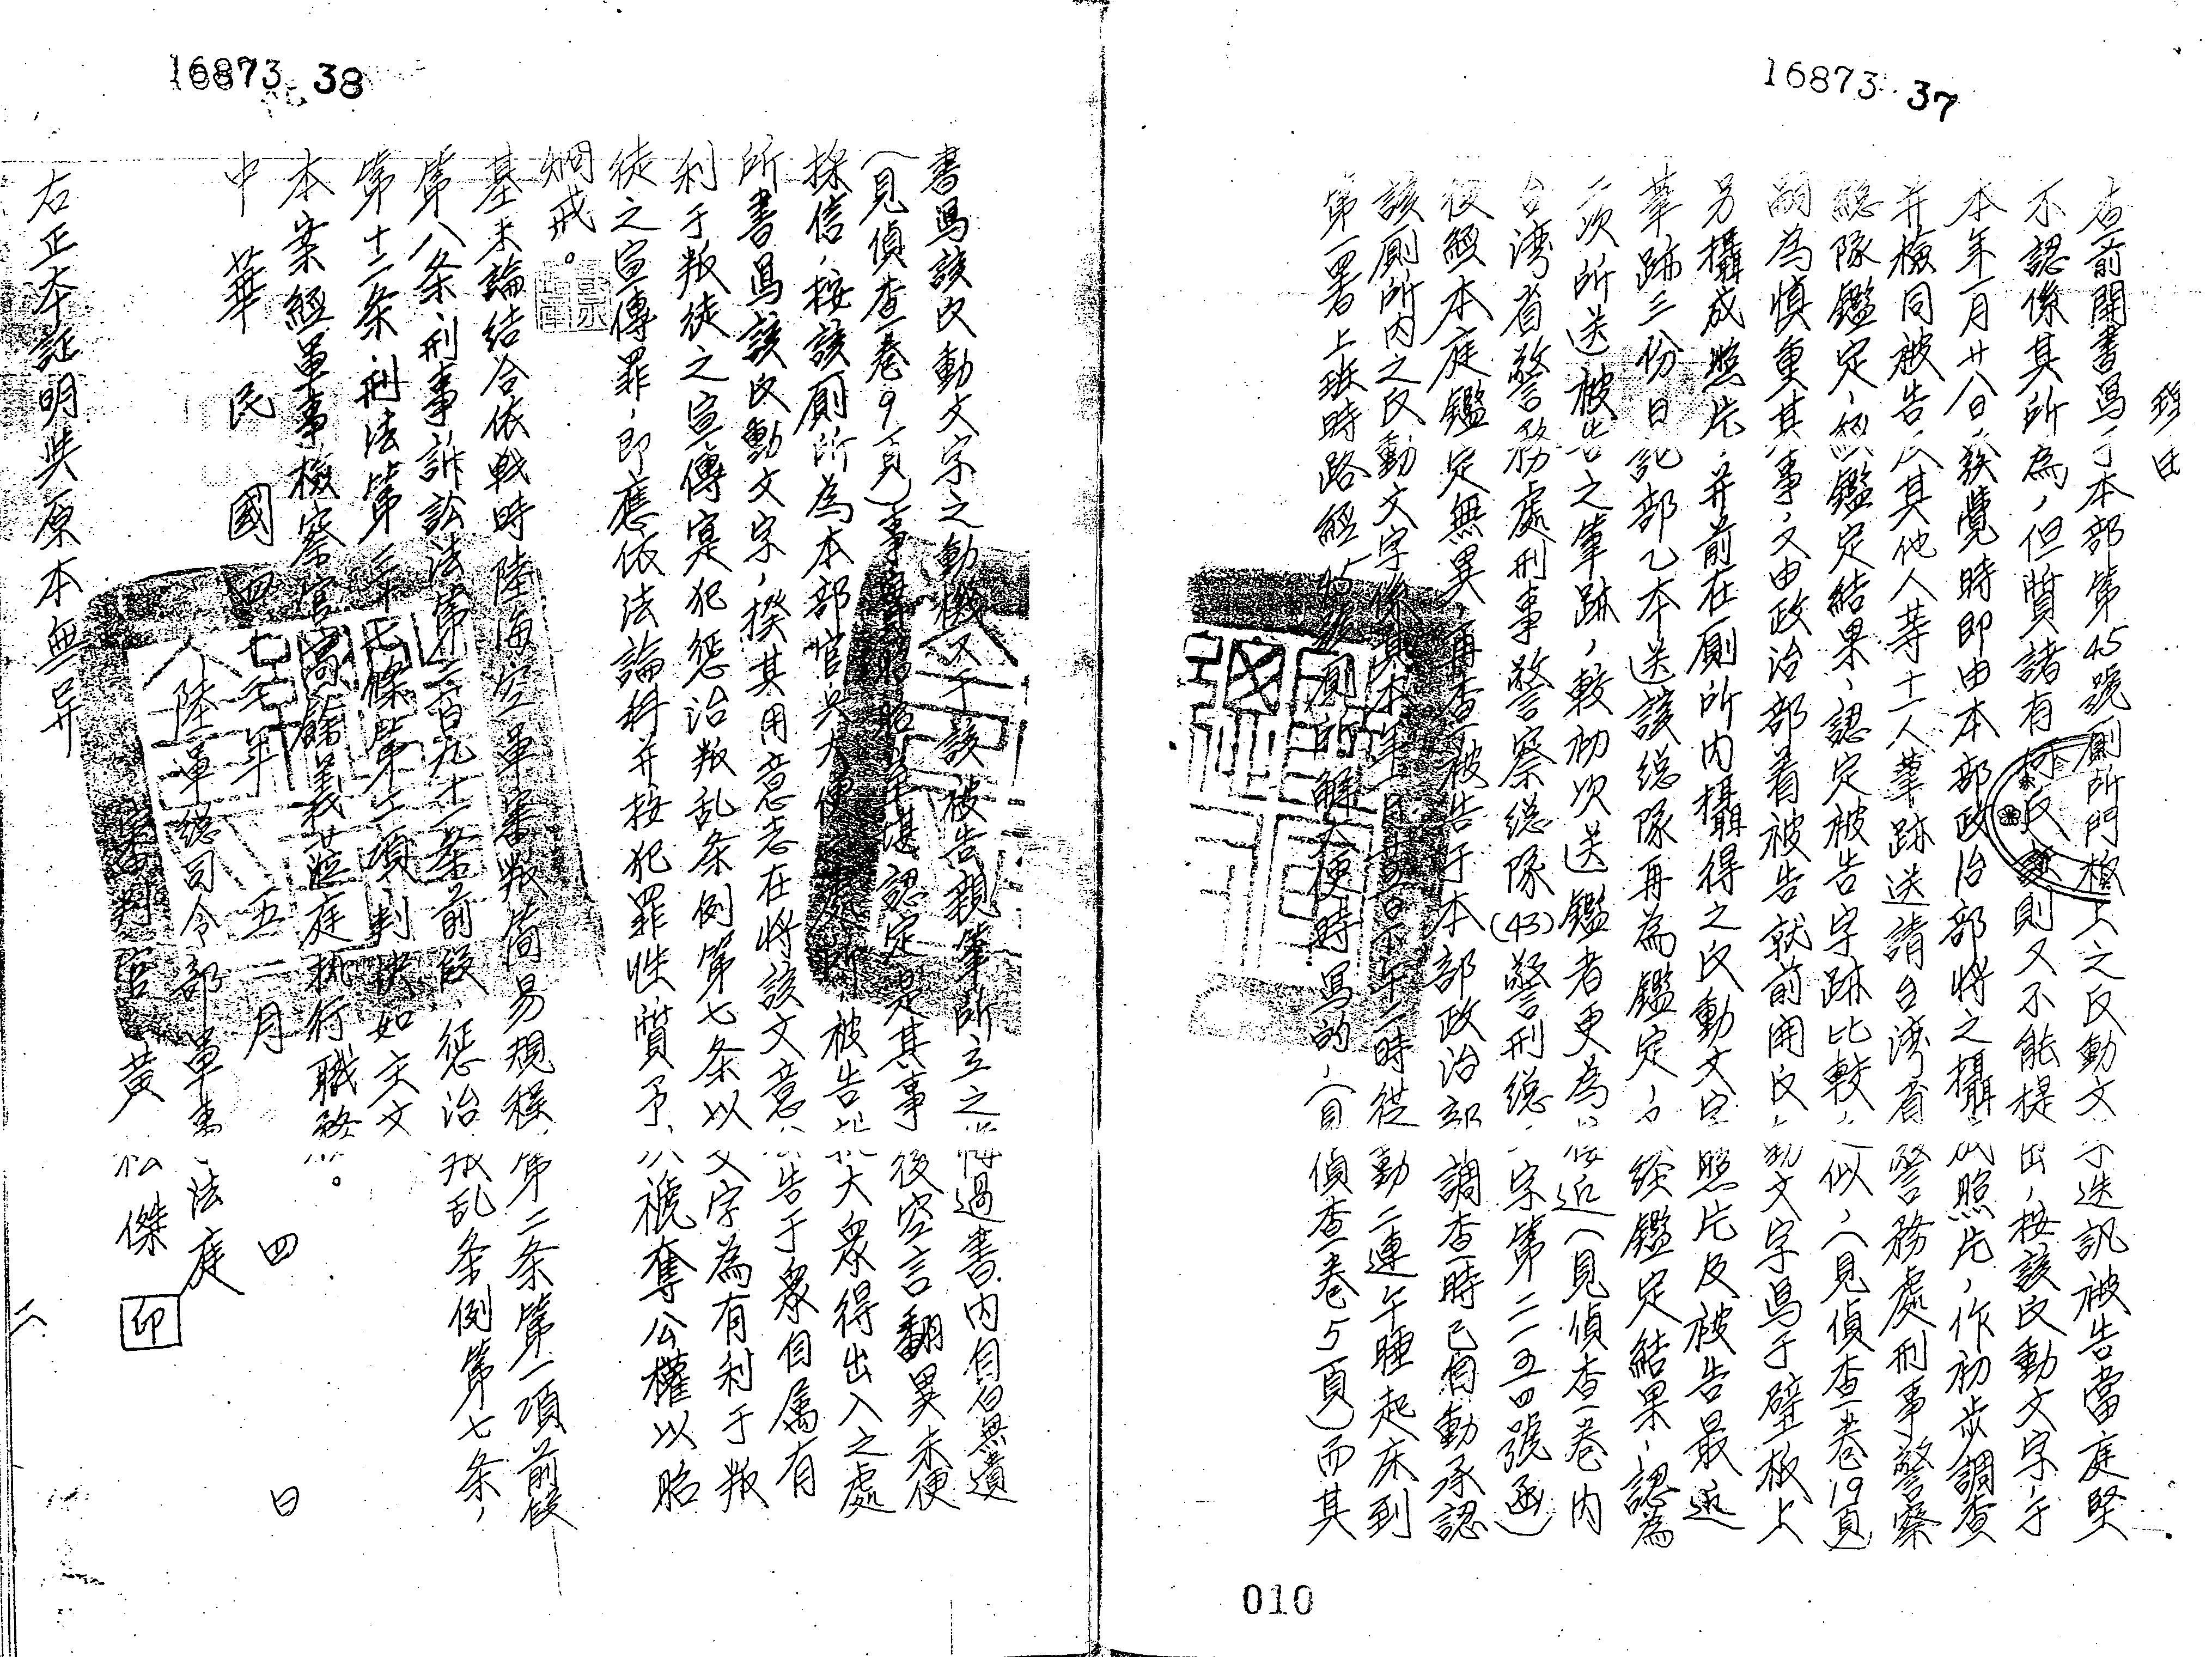 16873 37
理由
查前開書寫于本部第45號厠所門板上之反動文字迭訊被告當庭堅
不認係其所為，但質諸有何反証則又不能提出，按該反動文字，于
本年一月廿八日，發覺時即由本部政治部將之攝成照片，作初步調查
并檢同被告及其他人等十一人筆跡送請台湾省警務處刑事警察
總隊鑑定，經鑑定結果，認定被告字跡比較近似，（見偵查卷19頁）
嗣為慎重其事，又由政治部着被告就前開反動文字寫于壁板上
另攝成照片，并前在厠所內攝得之反動文字照片及被告最近
筆跡三份日記部乙本送該總隊再為鑑定，經鑑定結果，認為
二次所送被告之筆跡，較初次送鑑者更為接近（見偵查卷內
台湾省警務處刑事警察總隊(43)警刑總一字第二一五四號函）
復經本庭鑑定無異，再查被告于本部政治部調查時已自動承認
該厠所內之反動文字係其本年一月廿五日下午一時從動二連午睡起床到
第一署上班時路經45號厠所解大便時寫的，（見偵查卷5頁）而其
010
16873 38
書寫該反動文字之動機又于該被告親筆所立之悔過書內自白無遺
（見偵查卷9頁）事實昭昭至堪認定是其事後空言翻異未便
採信，按該厠所為本部官兵大便之處所，被告就大眾得出入之處
所書寫該反動文字，揆其用意志在將該文意公告于眾自属有
利于叛徒之宣傳寔犯惩治叛乱条例第七条以文字為有利于叛
徒之宣傳罪，即應依法論科并按犯罪性質予以褫奪公權以昭
炯戒。
基于論結合依戰時陸海空軍審叛簡易規程第二条第一項前段
第八条，刑事訴訟法第二百九十一条前段，惩治叛乱条例第七条，
第十二条，刑法第三十七條第二項判決如主文
本案經軍事檢察官高餘義蒞庭执行職務。
中華民國四十三年五月四日
陸軍總司令部軍事法庭
審判官 黄松傑 印
右正本証明與原本無异